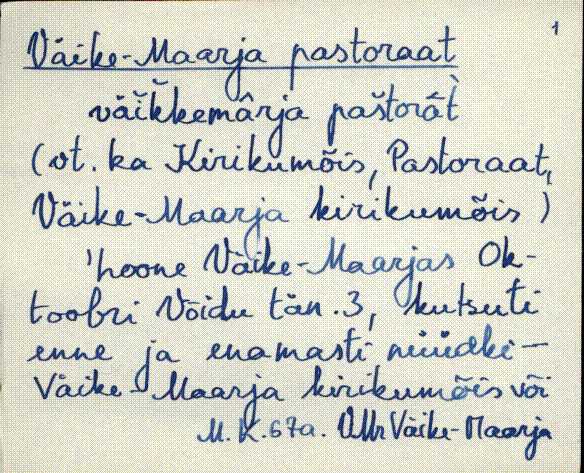 1
Väike-Maarja pastoraat
väikkemârja paštorât̀
(vt. ka Kirikumõis, Pastoraat,
Väike-Maarja kirikumõis)
'hoone Väike-Maarjas Ok-
toobri Võidu tän. 3, kutsuti
enne ja enamasti nüüdki —
Väike-Maarja kirikumõis või
M. K. 67a. Väike-Maarja